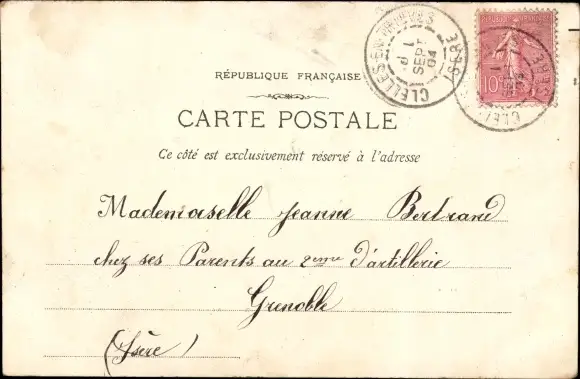 CLELLES-EN-TRIEVES
1
SEPT
04
ISERE
10
RÉPUBLIQUE FRANÇAISE
CARTE POSTALE
Ce côté est exclusivement réservé à l'adresse
Mademoiselle Jeanne Bertrand
chez ses Parents au 2ème d'artillerie
Grenoble
(Isère)